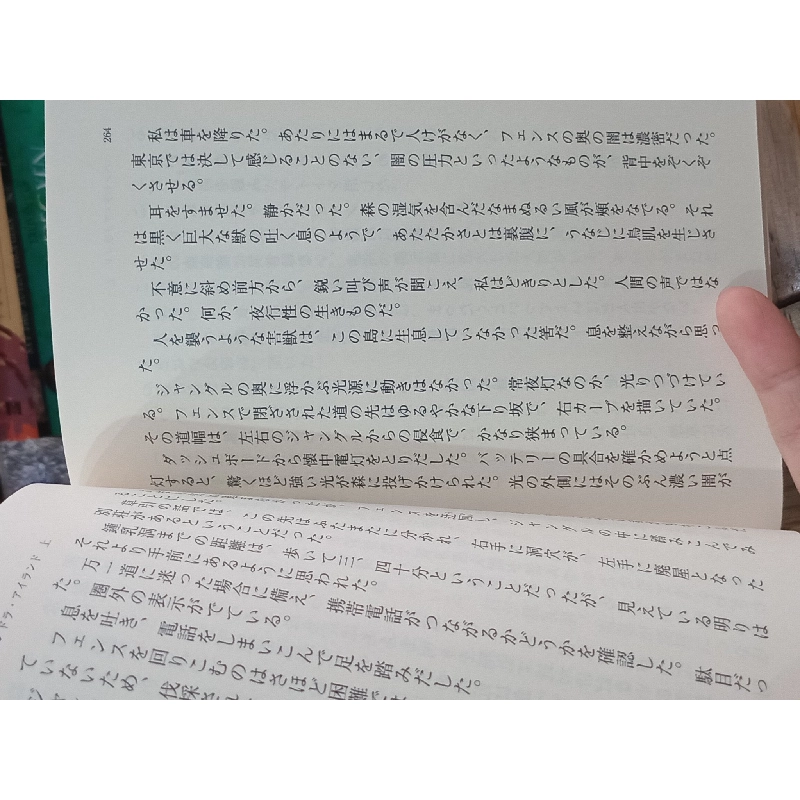 264
私は車を降りた。あたりにはまるで人けがなく、フェンスの奥の闇は濃密だった。
東京では決して感じることのない、闇の圧力といったようなものが、背中をぞくぞ
くさせる。
耳をすませた。静かだった。森の湿気を含んだなまぬるい風が頰をなでる。それ
は黒く巨大な獣の吐く息のようで、あたたかさとは裏腹に、うなじに鳥肌を生じさ
せた。
不意に斜め前方から、鋭い叫び声が聞こえ、私はどきりとした。人間の声ではな
かった。何か、夜行性の生きものだ。
人を襲うような害獣は、この島に生息していなかった筈だ。息を整えながら思っ
た。
ジャングルの奥に浮かぶ光源に動きはなかった。常夜灯なのか、光りつづけてい
る。フェンスで閉ざされた道の先はゆるやかな下り坂で、右カーブを描いていた。
その道幅は、左右のジャングルからの侵食で、かなり狭まっている。
ダッシュボードから懐中電灯をとりだした。バッテリーの具合を確かめようと点
灯すると、驚くほど強い光が森に投げかけられた。光の外側にはそのぶん濃い闇が
フェンスを迂回し、ジャングルの中に踏みこんでみ
この先はふたまたに分かれ、右手に洞穴が、左手に廃屋となった
別荘があるということだった。
鍾乳洞までの距離は、歩いて三、四十分ということだったが、見えている明りは
それより手前にあるように思われた。
万一道に迷った場合に備え、携帯電話がつながるかどうかを確認した。駄目だっ
た。圏外の表示がでている。
息を吐き、電話をしまいこんで足を踏みだした。
フェンスを回りこむのはさほど困難で
ていないため、伐採さ
ドラ・アイランド 上